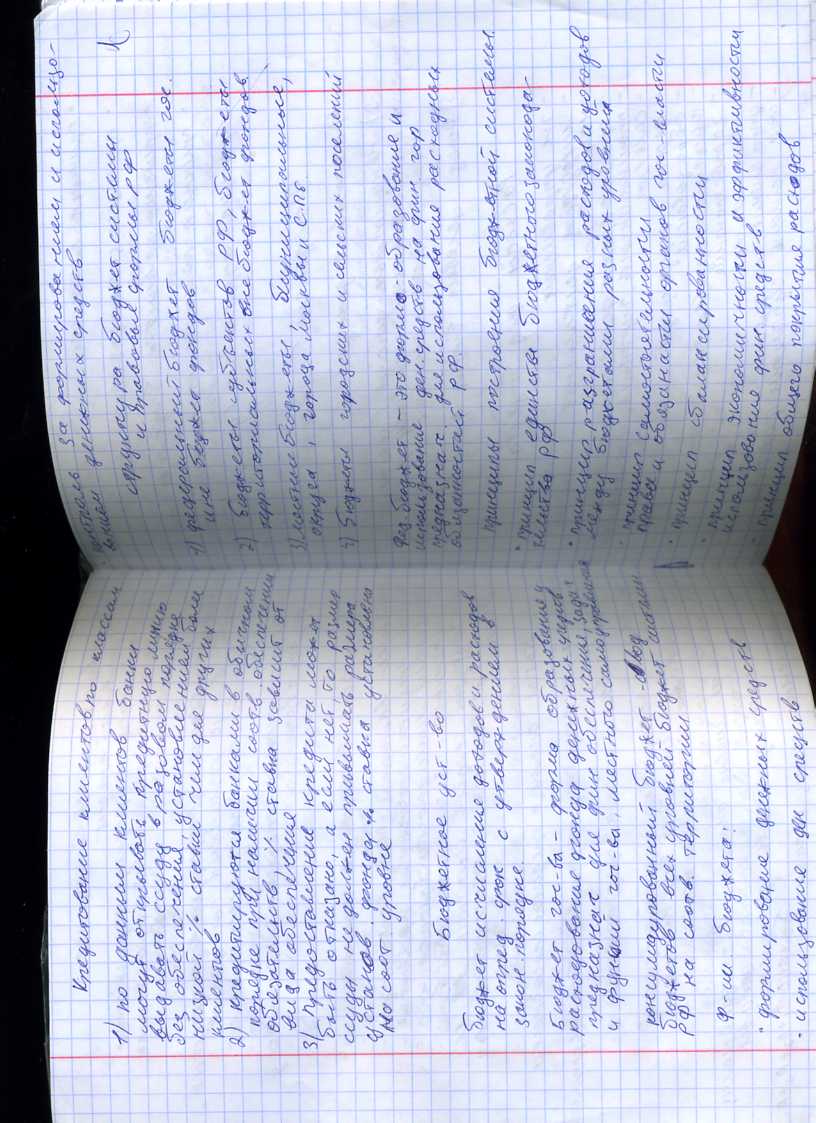 Кредитование клиентов по классам
1) по данным клиентов банки
могут открывать кредитную линию
выдавать ссуду в разовом порядке
без обеспечения, установлением более
низкой % ставки чем для других
клиентов
2) кредитируются банками в обычном
порядке при наличии соотв. обеспечения
обязательств, % ставка зависит от
вида обеспечения
3) предоставление кредита может
быть отказано, а если нет то размер
ссуды не должен превышать размера
уставн. фонда % ставка установлена
на соот уровне
Бюджетное уст-во
Бюджет исчисление доходов и расходов
на опред. срок с утверждением в
закон. порядке.
Бюджет гос-ва - форма образования и
расходования фонда денежных средств
предназнач для фин обеспечение задач
и функций гос-ва, местного самоуправления
консолидированный бюджет - свод
бюджетов всех уровней бюджет системы
РФ на соотв. территории.
Ф-ии бюджета:
- формирование денежных средств
- использование ден средств
контроль за формированием и использо-
ванием денежных средств
структура бюджет системы
и правовые формы РФ
1) федеральный бюджет бюджеты гос.
вне бюджет фондов
2) Бюджеты субъектов РФ, бюджеты
территориальных вне бюджет фондов
3) местные бюджеты, муниципальные,
округа, города Москвы и СПб
4) Бюджеты городских и сельских поселений
Фед бюджет - это форма образования и
использование ден средств на фин год
предназнач. для использования расходных
обязанностей РФ.
принципы построения бюджетной системы.
• принцип единства бюджетного законода-
тельства РФ
• принцип разграничения расходов и доходов
между бюджетами разных уровней
• принцип самостоятельности
права и обязанности органов гос-власти
• принцип сбалансированности
• принцип экономичности и эффективности
использования фин средств
• принцип общего покрытия расходов